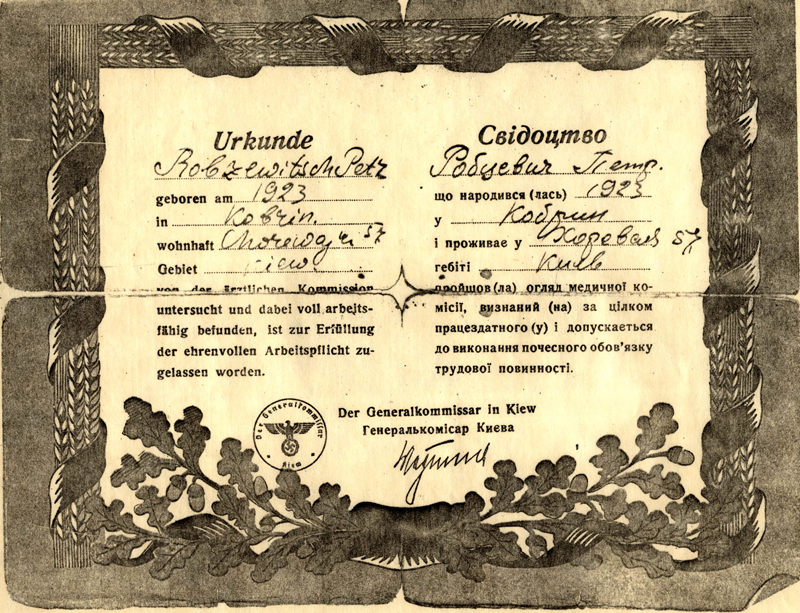 Urkunde
Robzewitsch Petr
geboren am 1923
in Kobrin.
wohnhaft 57
Gebiet Kiew
von der ärztlichen Kommission
untersucht und dabei voll arbeits-
fähig befunden, ist zur Erfüllung
der ehrenvollen Arbeitspflicht zu-
gelassen worden.
Свідоцтво
Робцевич Петр.
що народився (лась) 1923
у Кобрин
і проживає у Хоревая 57
гебіті Киев
пройшов (ла) огляд медичної ко-
місії, визнаний (на) за цілком
працездатного (у) і допускається
до виконання почесного обов'язку
трудової повинності.
Der Generalkommissar in Kiew
Генералькомісар Києва
Der Generalkommissar
Kiew